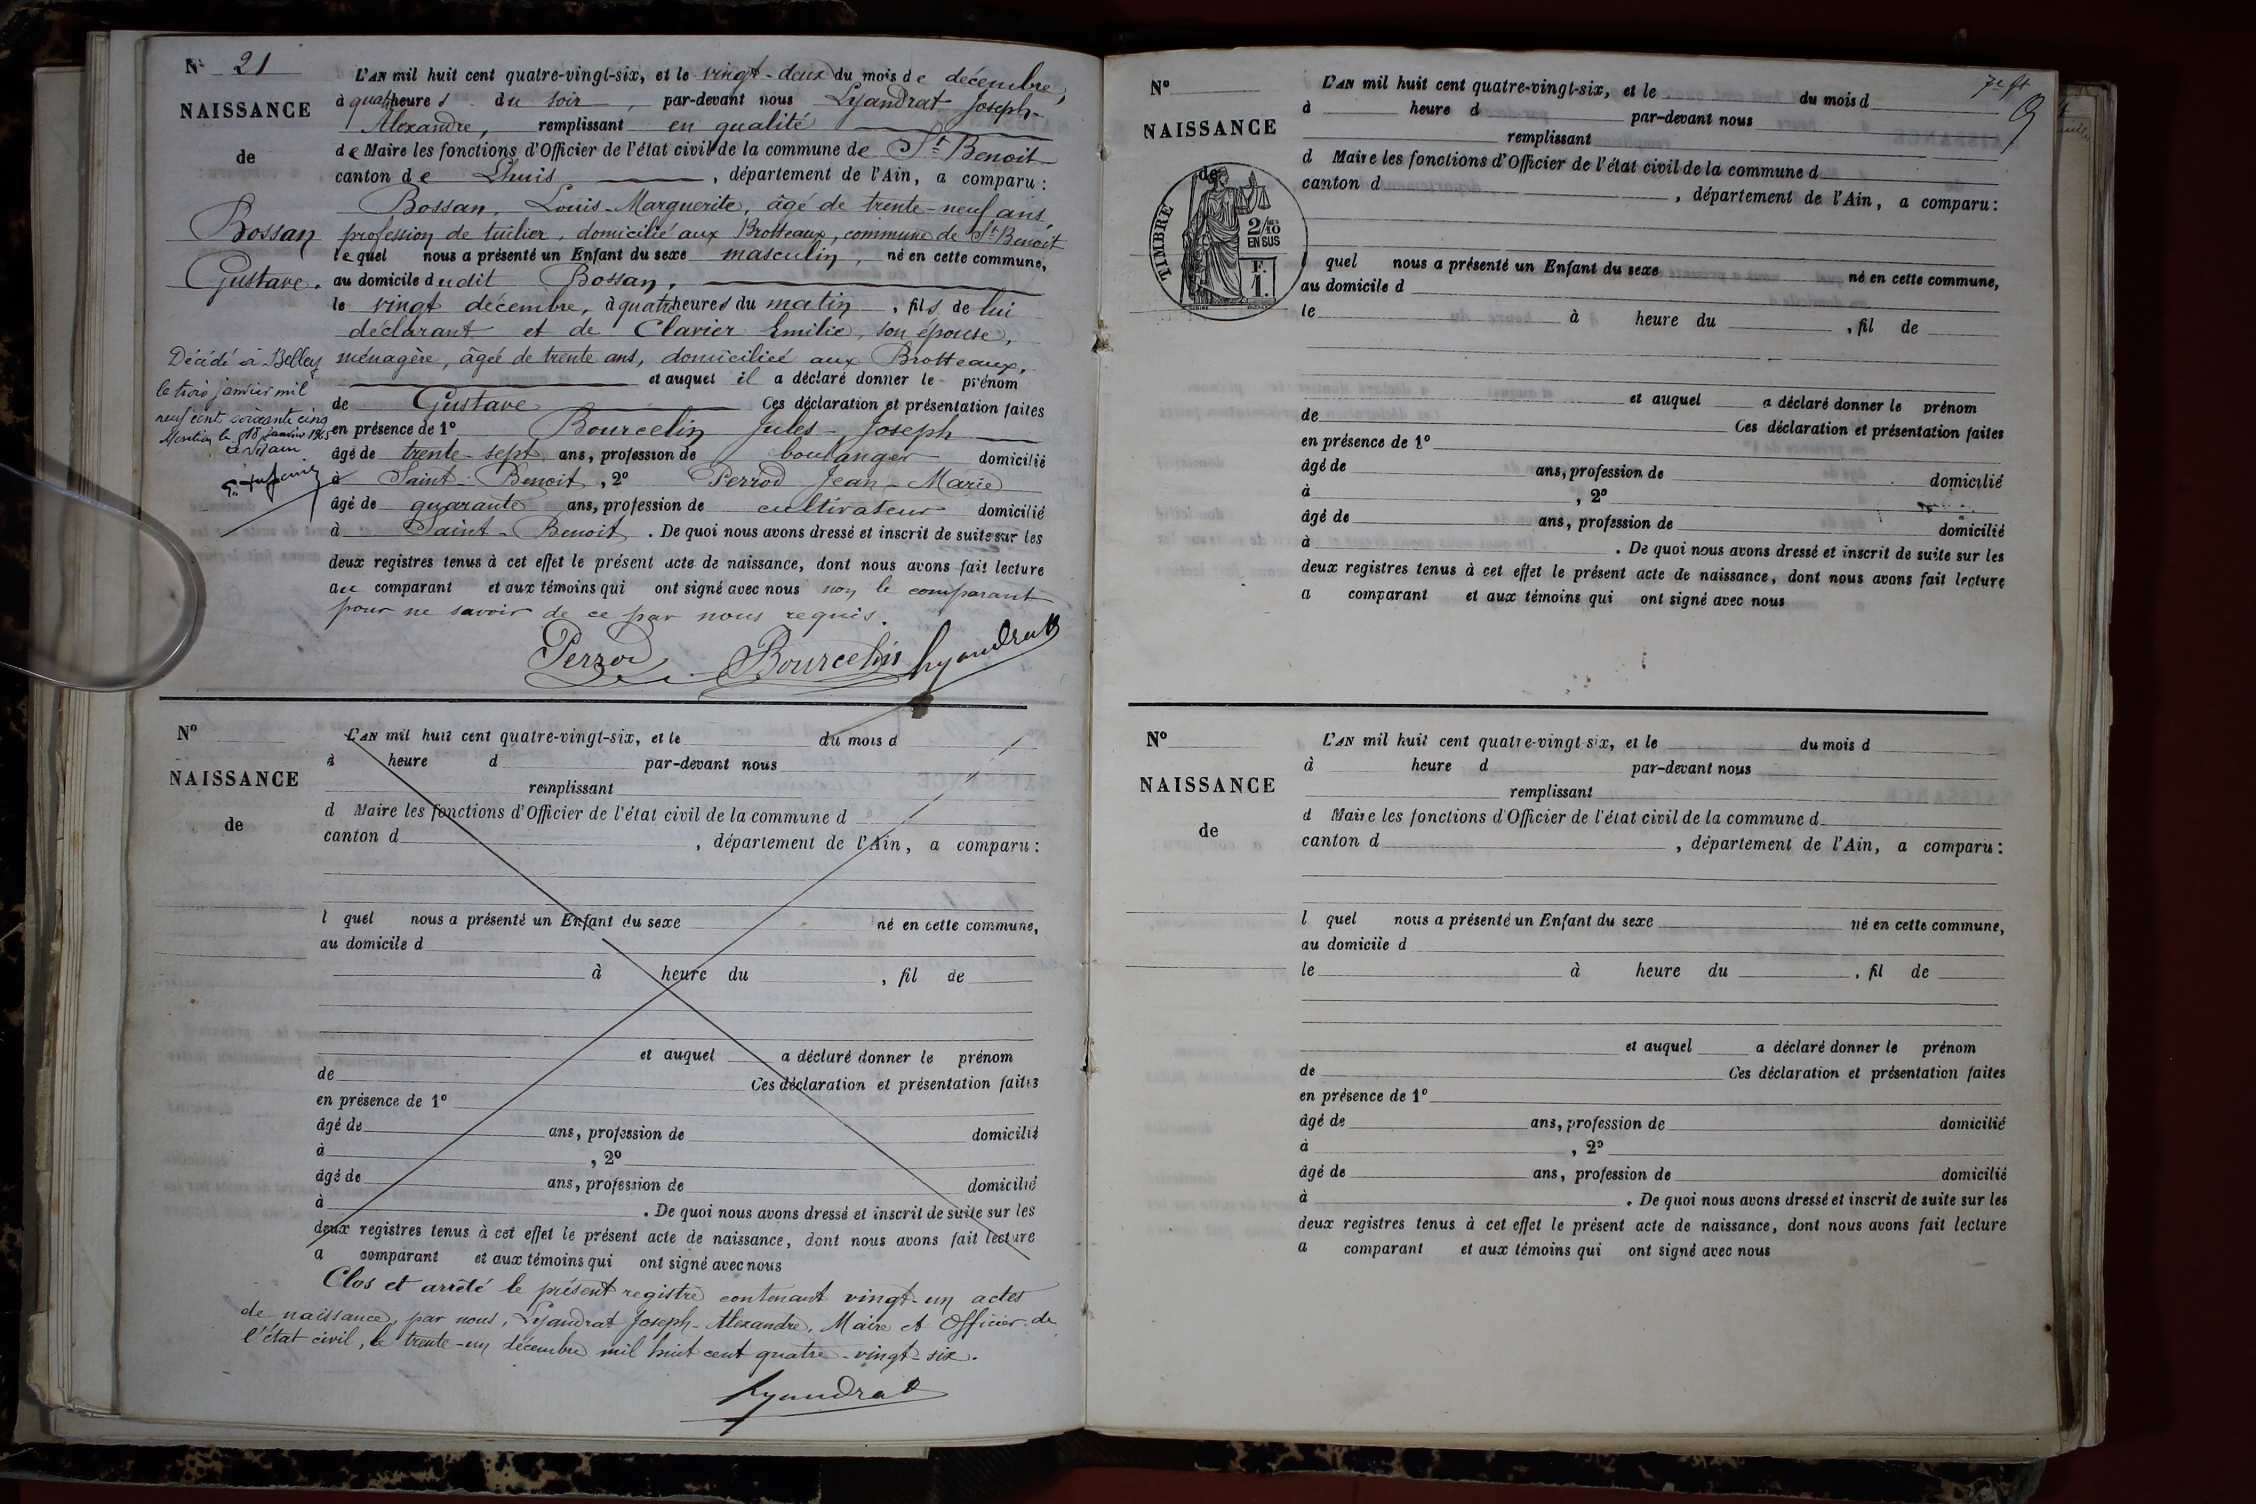 N° 21
NAISSANCE
de
Bossan
Gustave.
Décédé à Belley
le trois janvier mil
neuf cent soixante cinq
Mention le 18 janvier 1965
L'AN mil huit cent quatre-vingt-six, et le vingt-deux du mois de décembre,
à quatre heures du soir, par-devant nous Lyandrat Joseph-
Alexandre, remplissant en qualité
de Maire les fonctions d'Officier de l'état civil de la commune de St Benoit
canton de Lhuis, département de l'Ain, a comparu :
Bossan, Louis-Marguerite, âgé de trente-neuf ans
profession de tuilier, domicilié aux Brotteaux, commune de St Benoit
lequel nous a présenté un Enfant du sexe masculin, né en cette commune,
au domicile dudit Bossan,
le vingt décembre, à quatre heures du matin, fils de lui
déclarant et de Clavier Emilie, son épouse,
ménagère, âgée de trente ans, domiciliée aux Brotteaux,
et auquel il a déclaré donner le prénom
de Gustave Ces déclaration et présentation faites
en présence de 1° Bourcelin Jules-Joseph
âgé de trente-sept ans, profession de boulanger domicilié
à Saint-Benoit, 2° Perrod Jean-Marie
âgé de quarante ans, profession de cultivateur domicilié
à Saint-Benoit. De quoi nous avons dressé et inscrit de suite sur les
deux registres tenus à cet effet le présent acte de naissance, dont nous avons fait lecture
au comparant et aux témoins qui ont signé avec nous non le comparant
pour ne savoir de ce par nous requis.
Perrod Bourcelin Lyandrat
N°
NAISSANCE
de
L'AN mil huit cent quatre-vingt-six, et le du mois d
à heure d par-devant nous
remplissant
d Maire les fonctions d'Officier de l'état civil de la commune d
canton d , département de l'Ain, a comparu :
l quel nous a présenté un Enfant du sexe né en cette commune,
au domicile d
à heure du , fil de
et auquel a déclaré donner le prénom
de Ces déclaration et présentation faites
en présence de 1°
âgé de ans, profession de domicilié
à , 2°
âgé de ans, profession de domicilié
à . De quoi nous avons dressé et inscrit de suite sur les
deux registres tenus à cet effet le présent acte de naissance, dont nous avons fait lecture
a comparant et aux témoins qui ont signé avec nous
Clos et arrêté le présent registre contenant vingt-un actes
de naissance, par nous, Lyandrat Joseph-Alexandre, Maire et Officier de
l'état civil, le trente-un décembre mil huit cent quatre-vingt-six.
Lyandrat
N°
NAISSANCE
de
TIMBRE
2/10
EN SUS
F.
1.
L'AN mil huit cent quatre-vingt-six, et le du mois d
à heure d par-devant nous
remplissant
d Maire les fonctions d'Officier de l'état civil de la commune d
canton d , département de l'Ain, a comparu :
quel nous a présenté un Enfant du sexe né en cette commune,
au domicile d
le à heure du , fil de
et auquel a déclaré donner le prénom
de Ces déclaration et présentation faites
en présence de 1°
âgé de ans, profession de domicilié
à , 2°
âgé de ans, profession de domicilié
à . De quoi nous avons dressé et inscrit de suite sur les
deux registres tenus à cet effet le présent acte de naissance, dont nous avons fait lecture
a comparant et aux témoins qui ont signé avec nous
N°
NAISSANCE
de
L'AN mil huit cent quatre-vingt-six, et le du mois d
à heure d par-devant nous
remplissant
d Maire les fonctions d'Officier de l'état civil de la commune d
canton d , département de l'Ain, a comparu :
l quel nous a présenté un Enfant du sexe né en cette commune,
au domicile d
le à heure du , fil de
et auquel a déclaré donner le prénom
de Ces déclaration et présentation faites
en présence de 1°
âgé de ans, profession de domicilié
à , 2°
âgé de ans, profession de domicilié
à . De quoi nous avons dressé et inscrit de suite sur les
deux registres tenus à cet effet le présent acte de naissance, dont nous avons fait lecture
a comparant et aux témoins qui ont signé avec nous